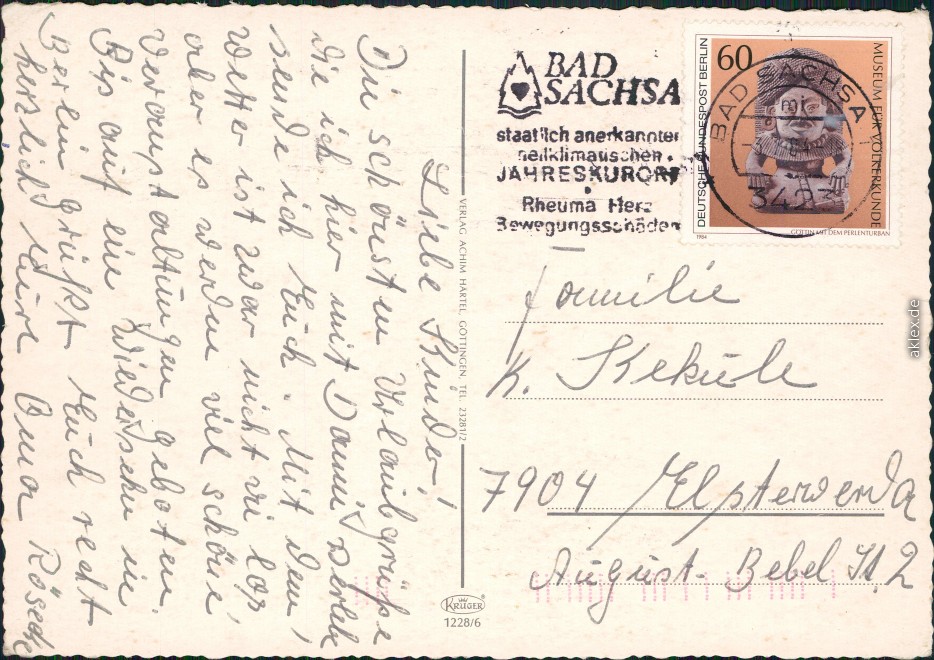 Liebe Kinder!
Die schönsten Urlaubsgrüße
die ich hier mit Dammi verlebe
sende ich Euch. Mit dem
Wetter ist zwar nicht viel los,
aber es werden viel schöne
Veranstaltungen geboten.
Bis auf ein Wiedersehn in
Berlin grüßt Euch recht
herzlich Eure Oma Röseck
VERLAG ACHIM HARTEL, GÖTTINGEN, TEL. 23281/2
KRÜGER
1228/6
BAD
SACHSA
staatlich anerkannter
heilklimatischer
JAHRESKURORT
Rheuma Herz
Bewegungsschäden
60
DEUTSCHE BUNDESPOST BERLIN
MUSEUM FÜR VÖLKERKUNDE
1984
GÖTTIN MIT DEM PERLENTURBAN
BAD SACHSA
3423
Familie
K. Keküle
7904 Elsterwerda
August-Bebel St. 2
aklex.de